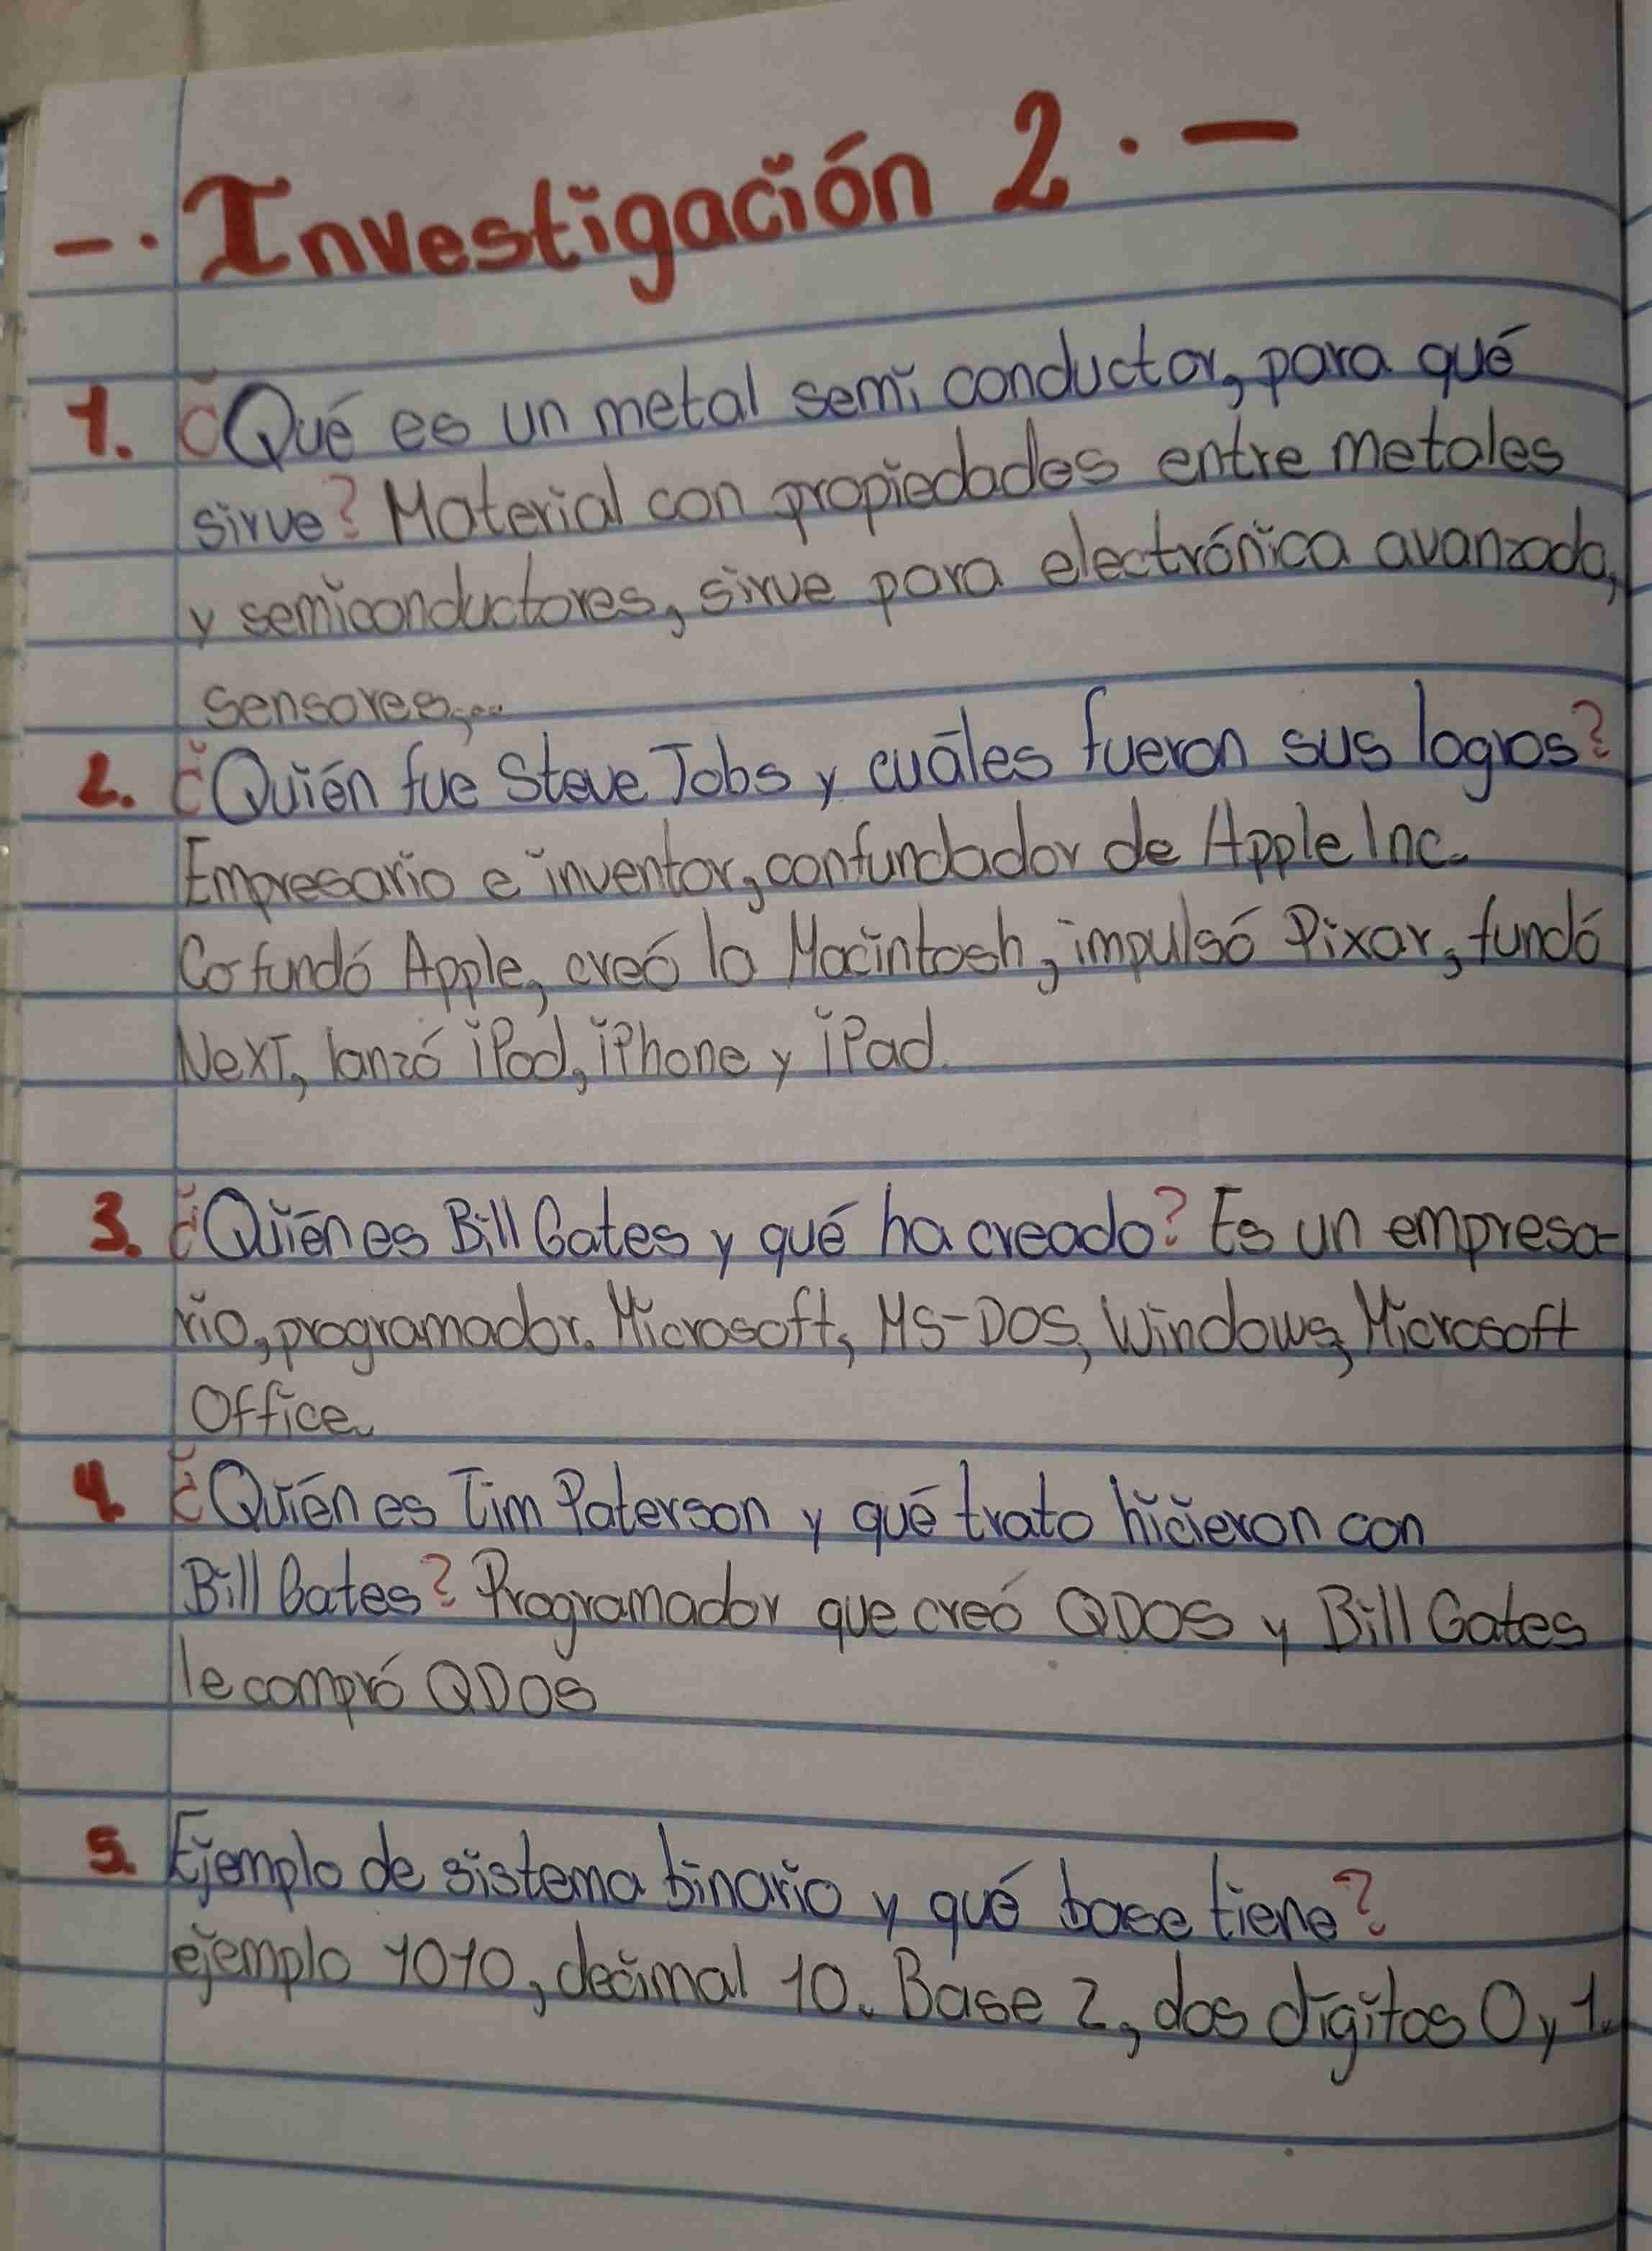 -. Investigación 2.-
1. ¿Qué es un metal semi conductor, para qué
sirve? Material con propiedades entre metales
y semiconductores, sirve para electrónica avanzada,
sensores,...
2. ¿Quién fue Steve Jobs y cuáles fueron sus logros?
Empresario e inventor, confundador de Apple Inc.
Cofundó Apple, creó la Macintosh, impulsó Pixar, fundó
NexT, lanzó iPod, iPhone y iPad.
3. ¿Quién es Bill Gates y qué ha creado? Es un empresa-
rio, programador. Microsoft, MS-DOS, Windows, Microsoft
Office.
4. ¿Quién es Tim Paterson y qué trato hicieron con
Bill Gates? Programador que creó QDOS y Bill Gates
le compró QDOS
5. Ejemplo de sistema binario y qué base tiene?
ejemplo 1010, decimal 10. Base 2, dos dígitos 0 y 1.